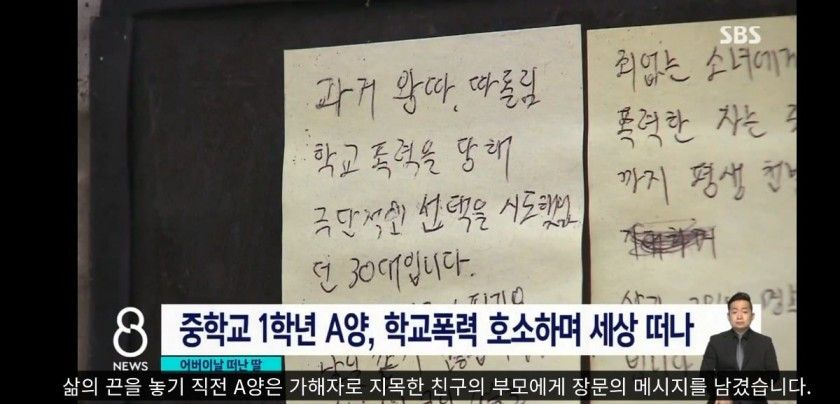 SBS
과거 왕따, 따돌림
학교 폭력을 당해
극단적인 선택을 시도했었
던 30대입니다.
죄없는 소녀에게
폭력한 자는
까지 평생
8
NEWS
중학교 1학년 A양, 학교폭력 호소하며 세상 떠나
어버이날 떠난 딸
삶의 끈을 놓기 직전 A양은 가해자로 지목한 친구의 부모에게 장문의 메시지를 남겼습니다.